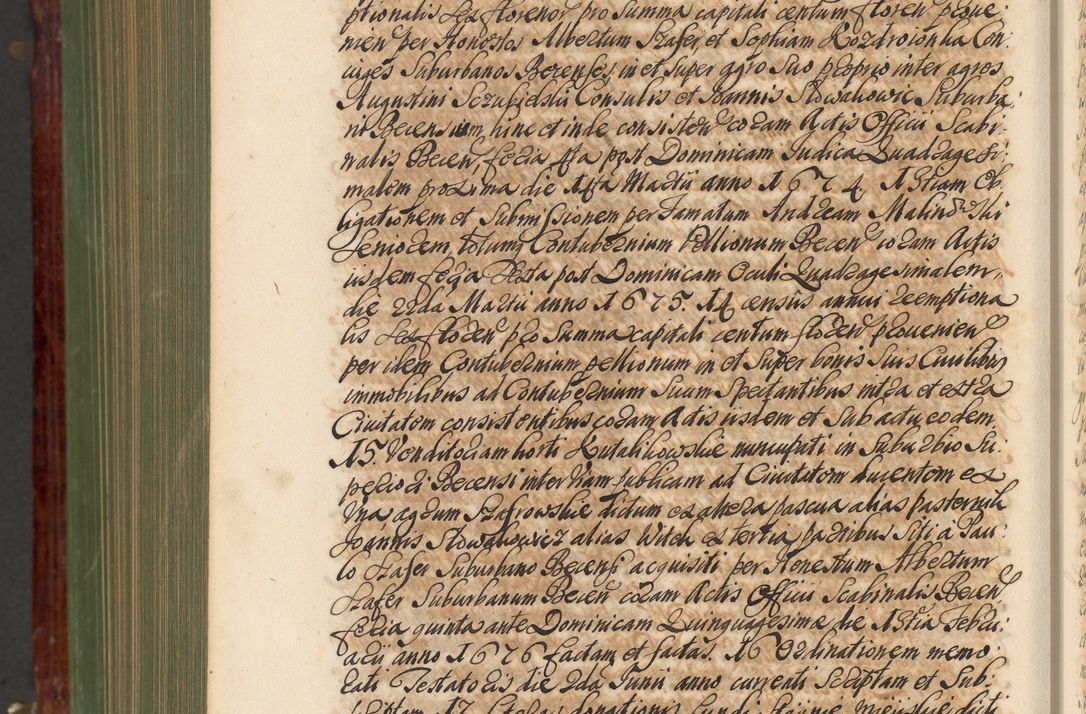 ptionalis sex florenor pro summa capitali centum floren proue:
nien per Honestos Albertum Szafer, et Sophiam Kozdroionka Con:
iuges Suburbanos Becenses, in et super agro suo proprio inter agros
Augustini Sczubjelski Consulis et Joannis Slowakowic Suburba:
ni Becensium, hinc et inde consisten coram Actis Officii Scabi:
nalis Becen, feria 4ta post Dominicam Judica Quadragesi:
malem proxima die 14ta Martii anno 1674, 13tiam Ob:
ligationem et Submissionem per Famatum Andream Malinowski
Seniorem, totumq Contubernium Pellionum Becen coram Actis
iisdem feria sexta post Dominicam Oculi Quadragesimalem,
die 22da Martii anno 1675. 14 census annui reemptiona
lis sex floren pro summa capitali centum floren prouenien
per idem Contubernium pellionum in et super bonis suis Ciuilibus
immobilibus ad Contubernium suum spectantibus intra et extra
Ciuitatem consistentibus coram Actis iisdem et sub actu eodem
15. Venditoriam horti Kutalikowskie nuncupati in Suburbio Su:
periori Becensi inter viam publicam ad Ciuitatem ducentem ex
vna agrum Szafrowskie dictum ex altera pascua alias pasternik
Joannis Slowakowicz alias Witek ex tertia partibus siti a Pau:
lo Szafer Suburbano Becensi acquisiti per Honestum Albertum
Szafer Suburbanum Becen coram Actis Officii Scabinalis Becen
feria quinta ante Dominicam Quinquagesimæ die 13tia Febru:
arii anno 1676 factam et factas. 16 Ordinationem memo:
rati Testatoris die 2da Junii anno currenti Scriptam et Sub: